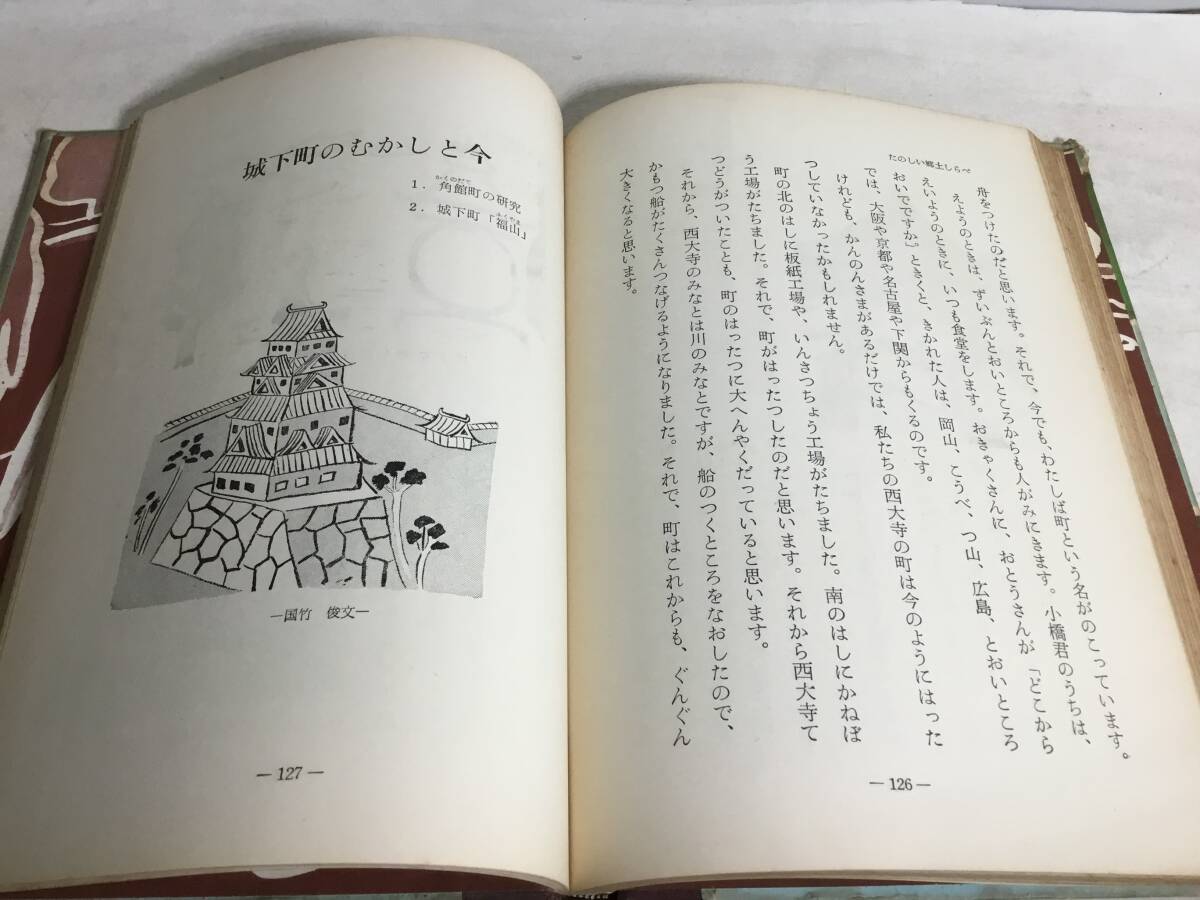 たのしい郷土しらべ
舟をつけたのだと思います。それで、今でも、わたしば町という名がのこっています。
えようのときは、ずいぶんとおいところからも人がみにきます。小橋君のうちは、
えいようのときに、いつも食堂をします。おきゃくさんに、おとうさんが「どこから
おいでですか」ときくと、きかれた人は、岡山、こうべ、つ山、広島、とおいところ
では、大阪や京都や名古屋や下関からもくるのです。
けれども、かんのんさまがあるだけでは、私たちの西大寺の町は今のようにはった
つしていなかったかもしれません。
町の北のはしに板紙工場や、いんさつちょう工場がたちました。南のはしにかねぼ
う工場がたちました。それで、町がはったつしたのだと思います。それから西大寺て
つどうがついたことも、町のはったつに大へんやくだっていると思います。
それから、西大寺のみなとは川のみなとですが、船のつくところをなおしたので、
かもつ船がたくさんつなげるようになりました。それで、町はこれからも、ぐんぐん
大きくなると思います。
— 126 —
城下町のむかしと今
1. 角館町の研究
かくのだて
2. 城下町「福山」
ふくやま
—国竹 俊文—
— 127 —